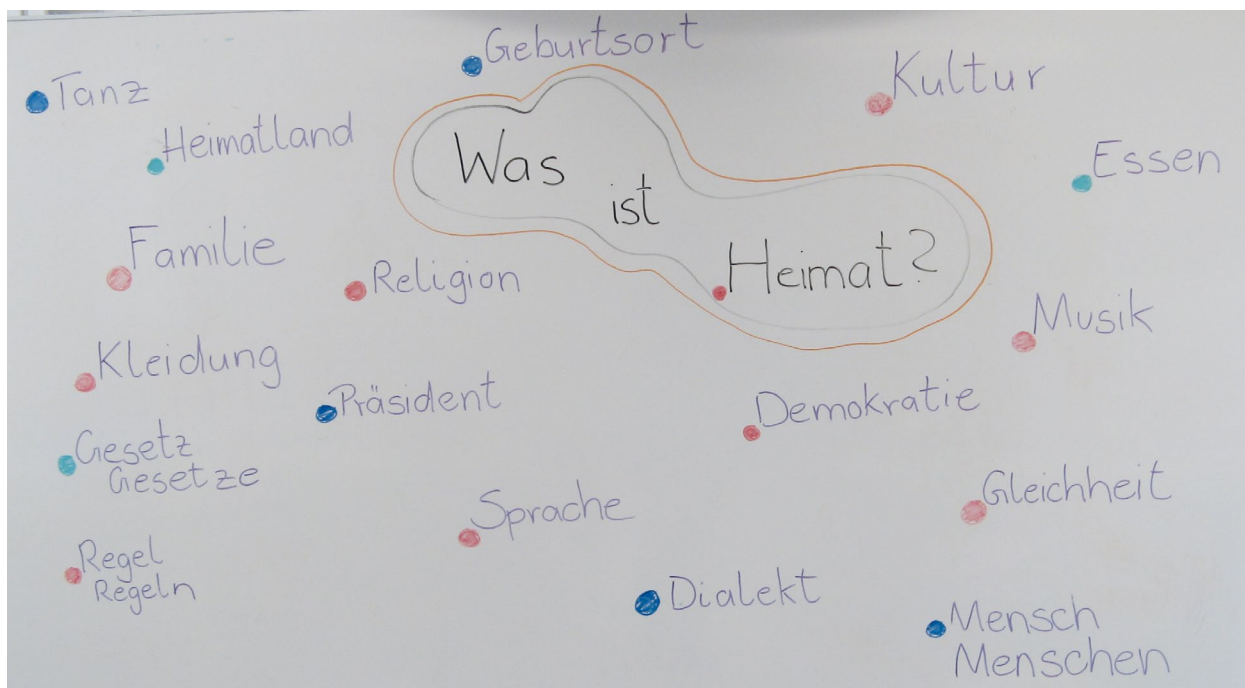 Geburtsort
Tanz
Kultur
Heimatland
Was
ist
Heimat?
Essen
Familie
Religion
Musik
Kleidung
Präsident
Demokratie
Gesetz
Gesetze
Sprache
Gleichheit
Regel
Regeln
Dialekt
Mensch
Menschen